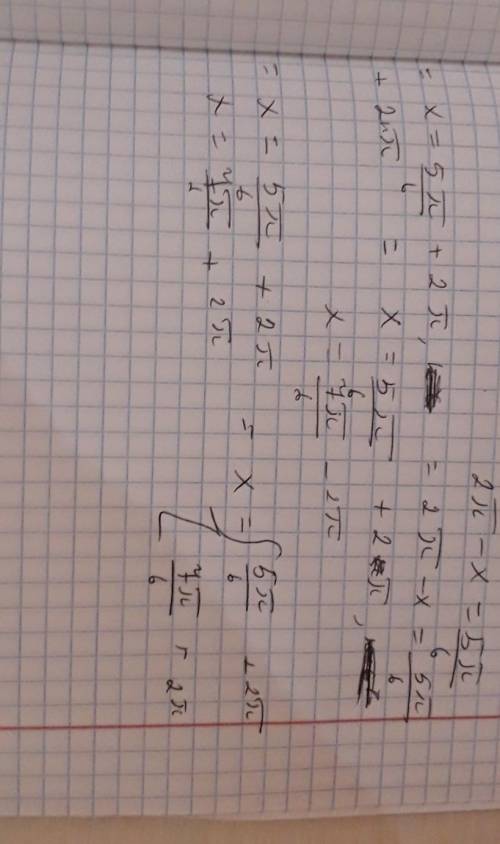 2π - x = 5π/6
= x = 5π/6 + 2π, = 2π - x = 5π/6
+ 2π = x = 5π/6 + 2π,
x = 7π/6 - 2π
= x = 5π/6 + 2π = x = 5π/6 + 2π
x = 7π/6 + 2π 7π/6 + 2π